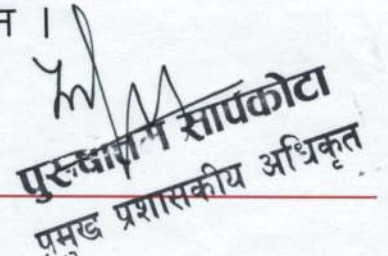 न ।
पुरुषोत्तम सापकोटा
प्रमुख प्रशासकीय अधिकृत